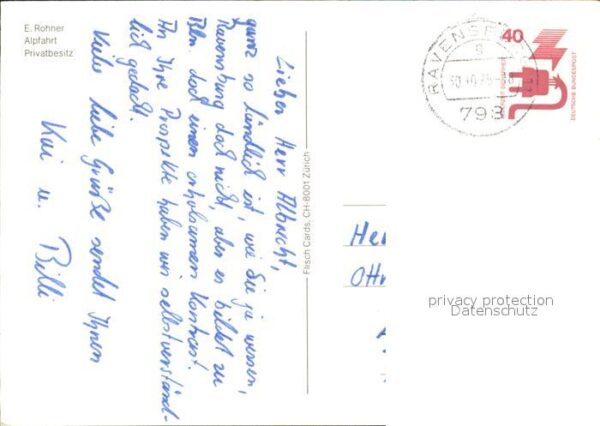 E. Rohner
Alpfahrt
Privatbesitz
Lieber Herr Albrecht,
ganz so ländlich ist, wie Sie ja wissen,
Ravensburg doch nicht, aber es bildet zu
Blm. doch einen erholsamen Kontrast.
An Ihre Prospekte haben wir selbstverständ-
lich gedacht.
Viele liebe Grüße sendet Ihnen
Kai u. Billi
Fläsch Cards, CH-8001 Zürich
RAVENSB
a
30.10.75
798
40
DEUTSCHE BUNDESPOST
Her
Ott
privacy protection
Datenschutz